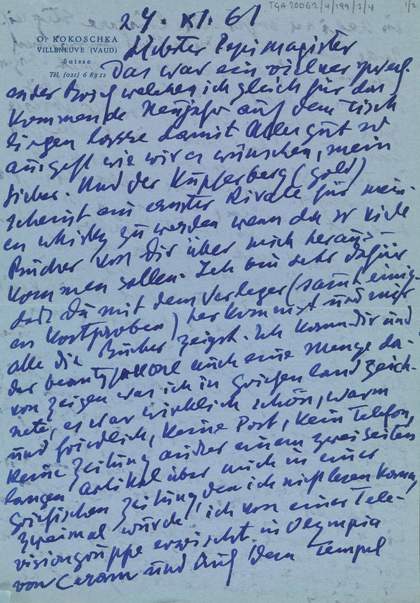 TGA 20062/4/199/2/4
1/2
27. XI. 61
OP. KOKOSCHKA
VILLENEUVE (VAUD)
Suisse
Tel. (021) 6 89 22
Liebster Papimagister
Das war ein viel
Brief welchen ich gleich für das
kommende Neujahr auf dem Tisch
liegen lasse damit Alles gut so
ausgeht wie wir es wünschen, mein
lieber. Und der Kupferberg (gold)
scheint ein ernster Rivale für mein
en whisky zu werden wenn da so viele
Bücher von Dir über mich heraus-
kommen sollen. Ich bin sehr dafür
daß Du mit dem Verleger (samt einig
en Kostproben) herkommst und mir
alle die Bücher zeigst. Ich kann Dir und
der auch eine Menge da-
von zeigen was ich in Griechenland zeich-
nete, es war wirklich schön, warm
und friedlich, keine Post, kein Telefon,
keine Zeitung außer einem zwei Seiten
langen Artikel über mich in einer
griechischen Zeitung den ich nicht lesen konnte,
zweimal wurde ich von einer Tele-
visiongruppe erwischt in Olympia
von und auf dem Tempel